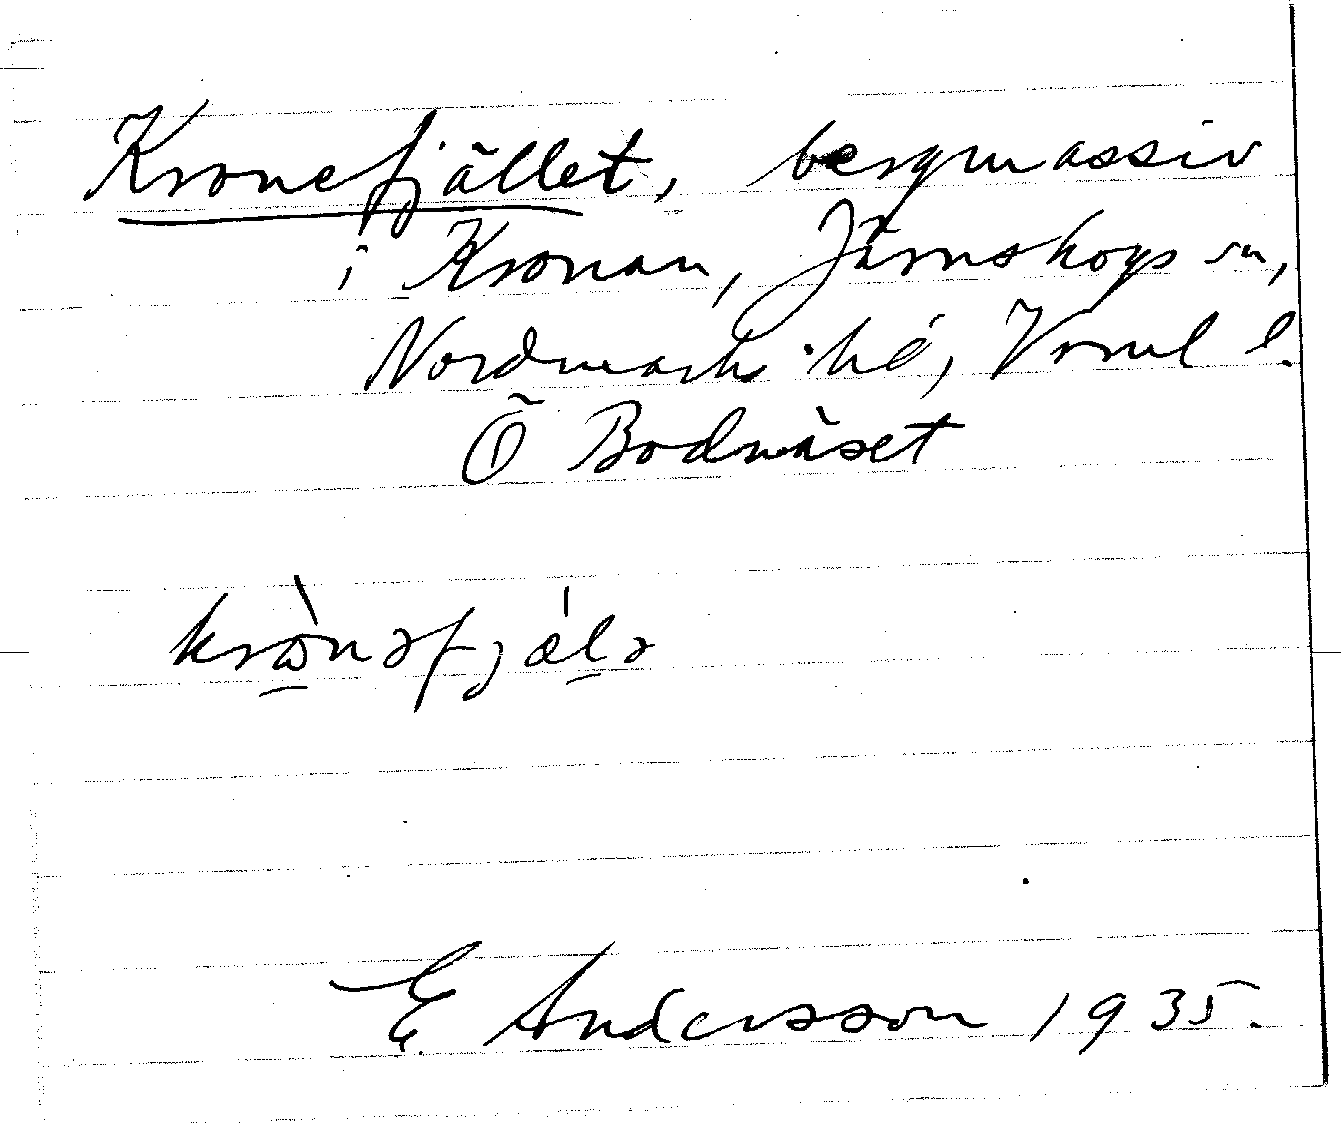 Kronefjället, bergmassiv
i Kronan, Järnskogs sn,
Nordmarks hd, Vrml l.
Ö Bodnäset
E Andersson 1935.